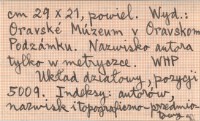 cm 29 x 21, powiel. Wyd.:
Oravské Múzeum v Oravskom
Podzámku. Nazwisko autora
tylko w metryczce. WHP
Układ działowy, pozycji
5009. Indeksy: autorów,
nazwisk i topograficzno-przedmio-
towy